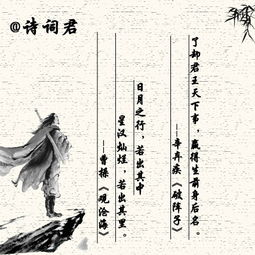 @诗词君
了却君王天下事，赢得生前身后名。
——辛弃疾《破阵子》
日月之行，若出其中
星汉灿烂，若出其里。
——曹操《观沧海》